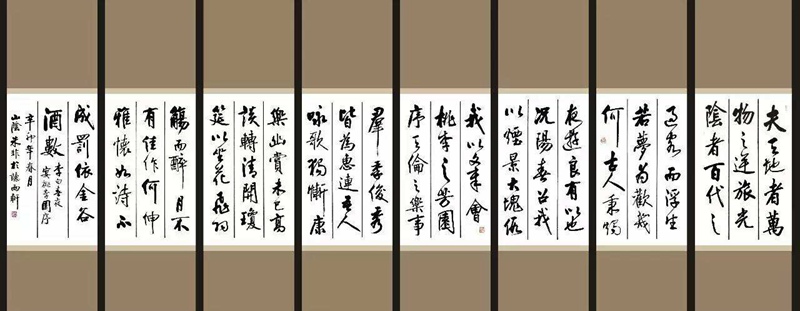 夫天地者萬
物之逆旅光
陰者百代之
過客而浮生
若夢為歡幾
何古人秉燭
夜遊良有以也
況陽春召我
以煙景大塊假
我以文章會
桃李之芳園
序天倫之樂事
羣季俊秀
皆為惠連吾人
詠歌獨慚康
樂幽賞未已高
談轉清開瓊
筵以坐花飛羽
觴而醉月不
有佳作何伸
雅懷如詩不
成罰依金谷
酒數
李白春夜
宴桃李園序
辛卯年春月
山陰朱非於聽雨軒